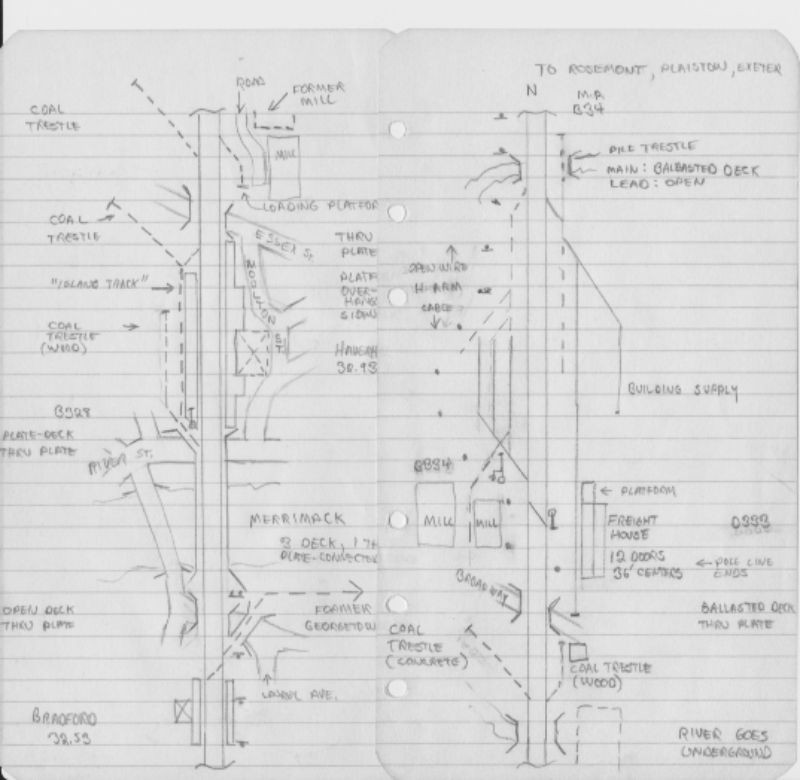 COAL
TRESTLE
ROAD
FORMER
MILL
MILL
LOADING PLATFOR
COAL
TRESTLE
ESSEX St.
THRU
PLATE
"ISLAND TRACK"
PLATF
OVER-
HANG
SIDIN
COAL
TRESTLE
(WOOD)
ST.
32.98
B328
PLATE-DECK
THRU PLATE
RIVER ST.
MERRIMACK
3 DECK, 1 TH
PLATE-CONNECTOR
OPEN DECK
THRU PLATE
FORMER
GEORGETOW
LAUREL AVE.
BRADFORD
32.53
TO ROSEMONT, PLAISTOW, EXETER
N
M.P.
B34
PILE TRESTLE
MAIN: BALLASTED DECK
LEAD: OPEN
OPEN WIRE
H-ARM
CABLE
BUILDING SUPPLY
B334
MILL
MILL
PLATFORM
FREIGHT
HOUSE
D333
12 DOORS
36' CENTERS
POLE LINE
ENDS
BROADWAY
BALLASTED DECK
THRU PLATE
COAL
TRESTLE
(CONCRETE)
COAL TRESTLE
(WOOD)
RIVER GOES
UNDERGROUND